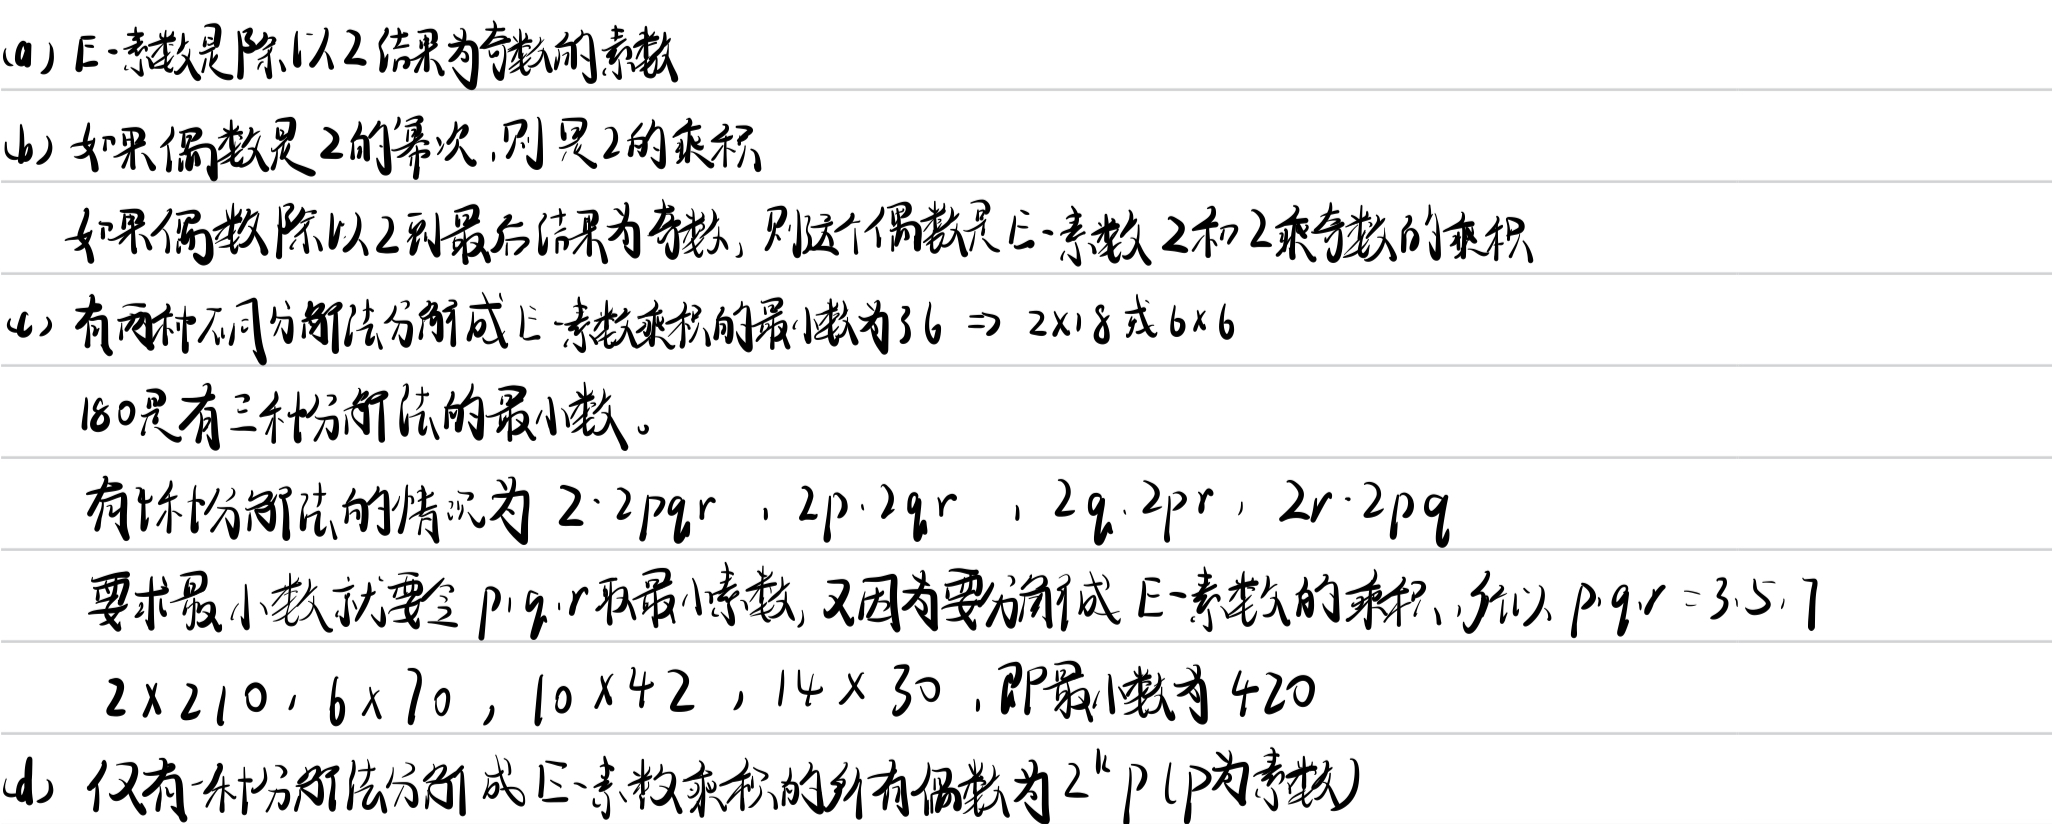 (a) E-素数是除以2结果为奇数的素数
(b) 如果偶数是2的幂次,则是2的乘积
如果偶数除以2到最后结果为奇数,则这个偶数是E-素数2和2乘奇数的乘积
(c) 有两种不同分解法分解成E-素数乘积的最小数为36 ⇒ 2×18或6×6
180是有三种分解法的最小数。
有4种分解法的情况为 2·2pqr , 2p·2qr , 2q·2pr , 2r·2pq
要求最小数就要令p,q,r取最小素数,又因为要分解成E-素数的乘积,所以p,q,r=3,5,7
2×210, 6×70, 10×42, 14×30,即最小数为420
(d) 仅有一种分解法分解成E-素数乘积的所有偶数为2ᵏp(p为素数)